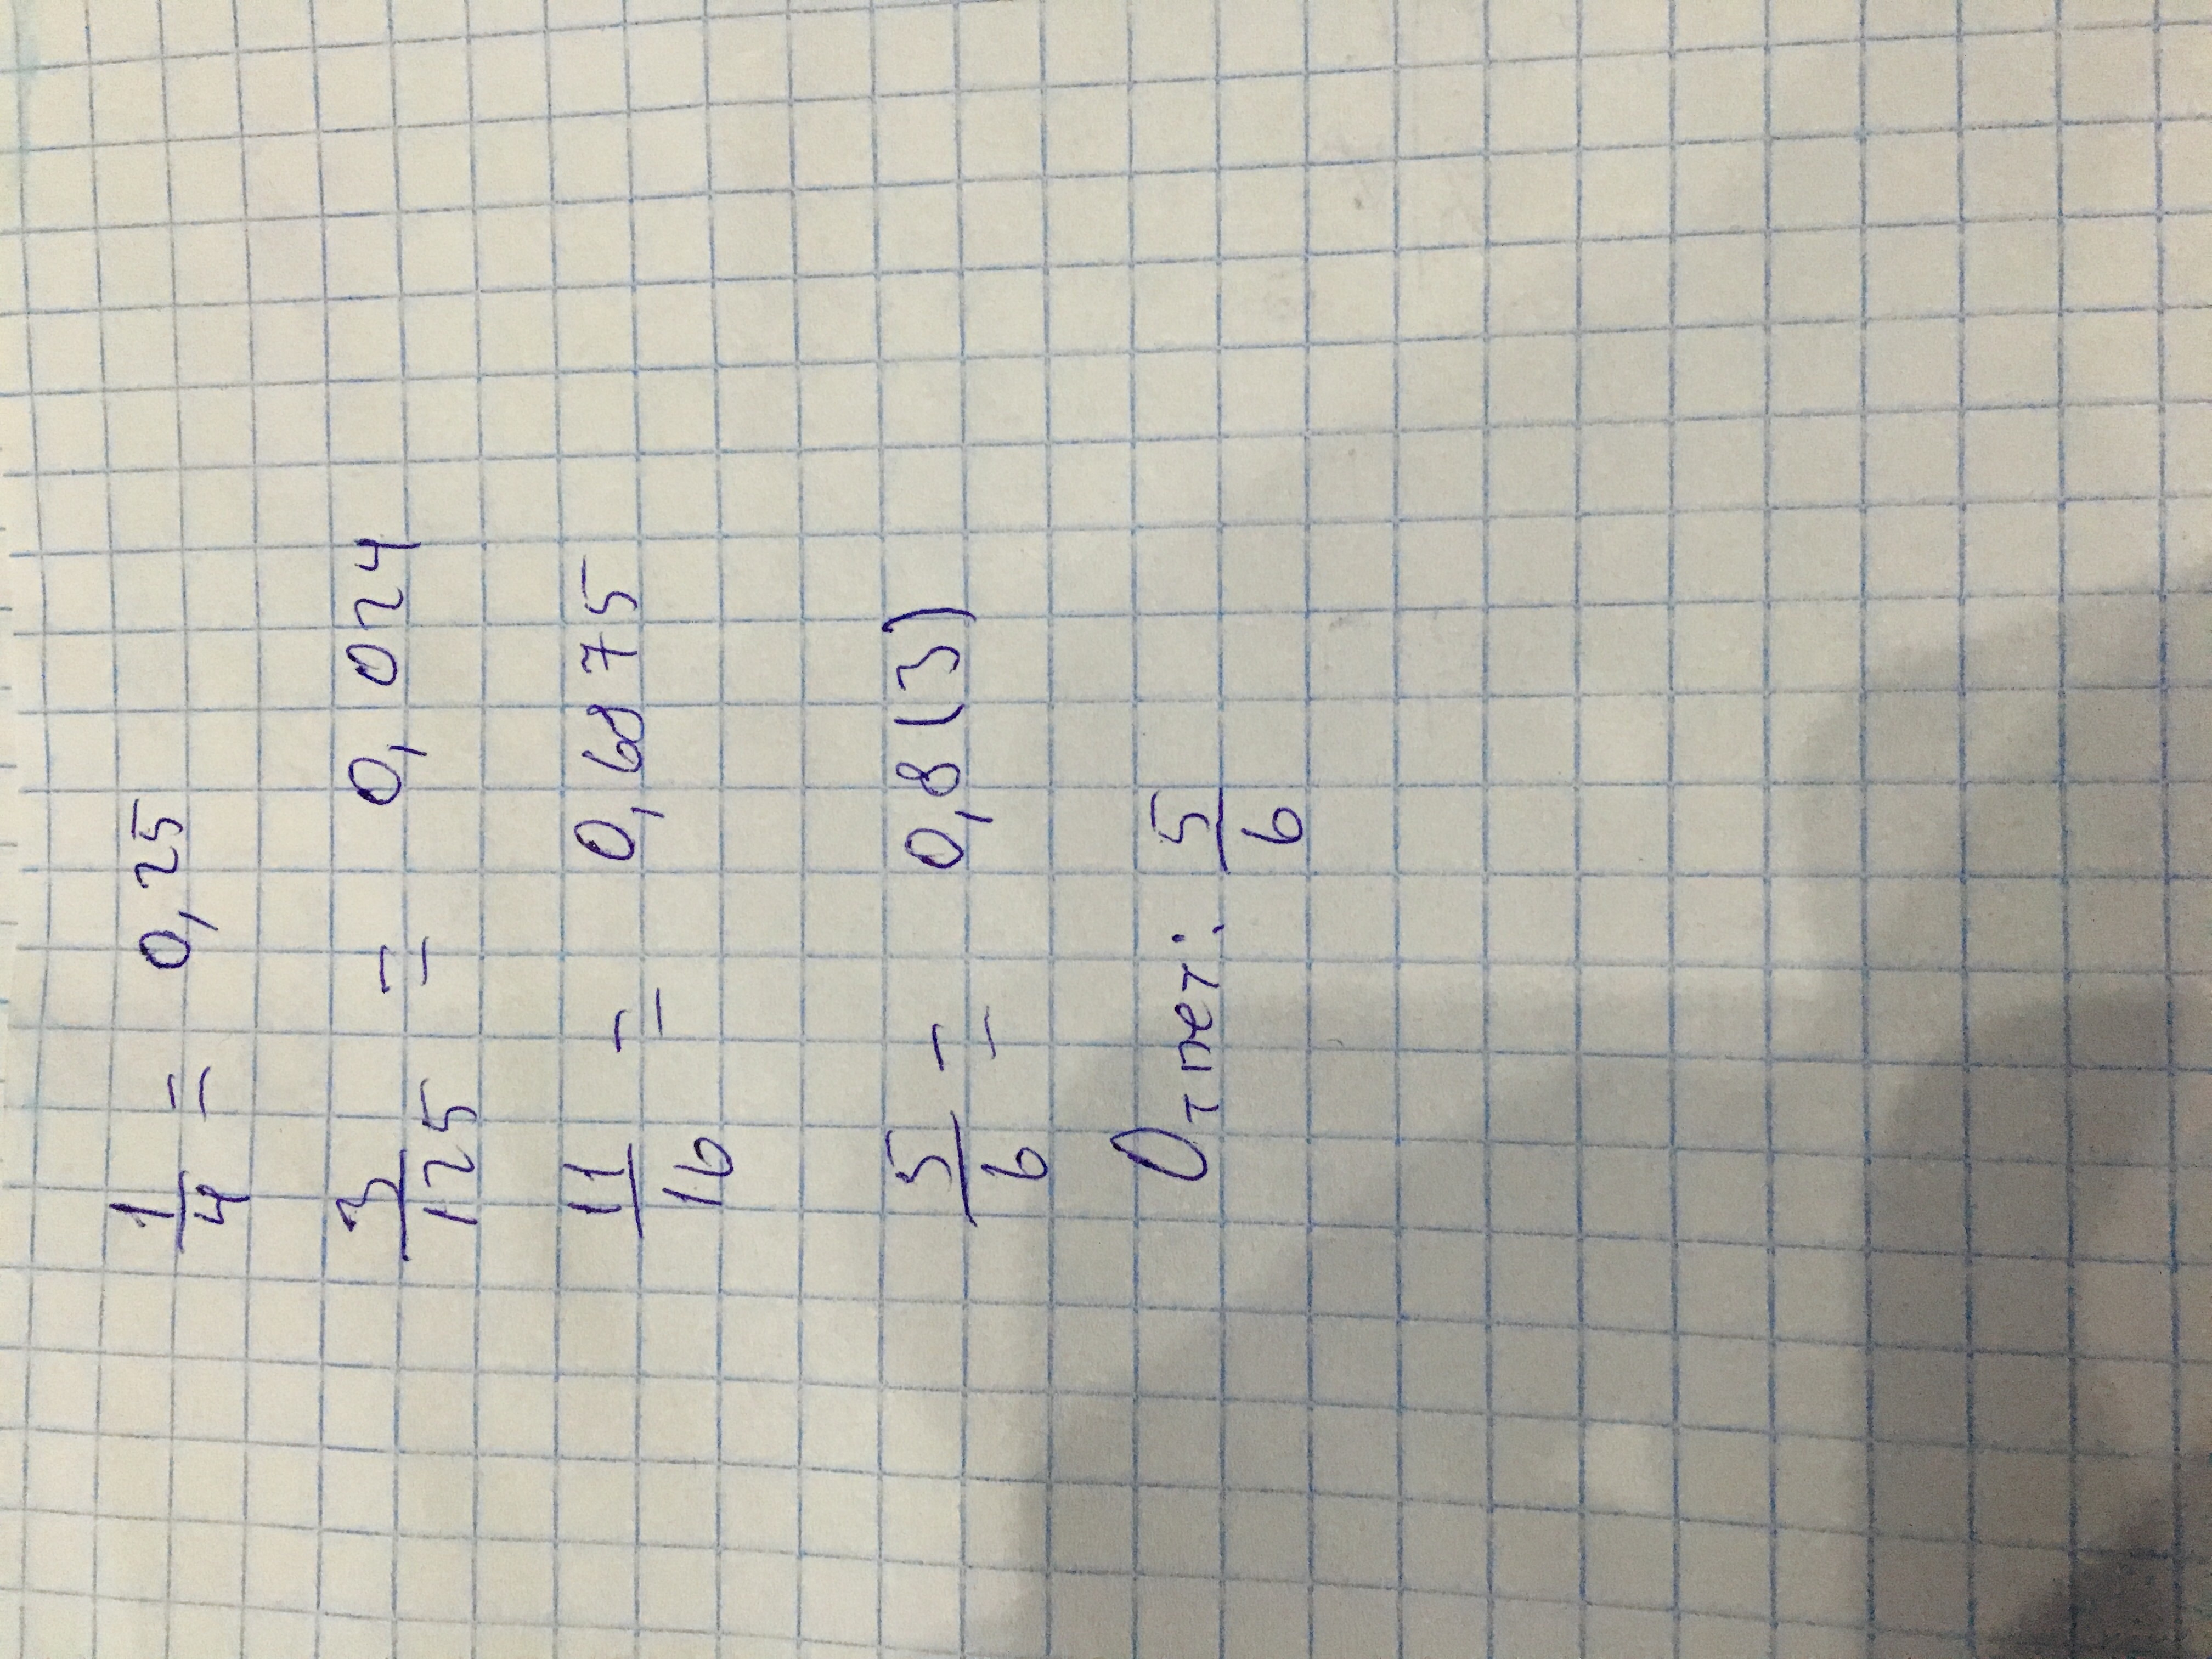 1/4 = 0,25
3/125 = 0,024
11/16 = 0,6875
5/6 = 0,8(3)
Ответ: 5/6